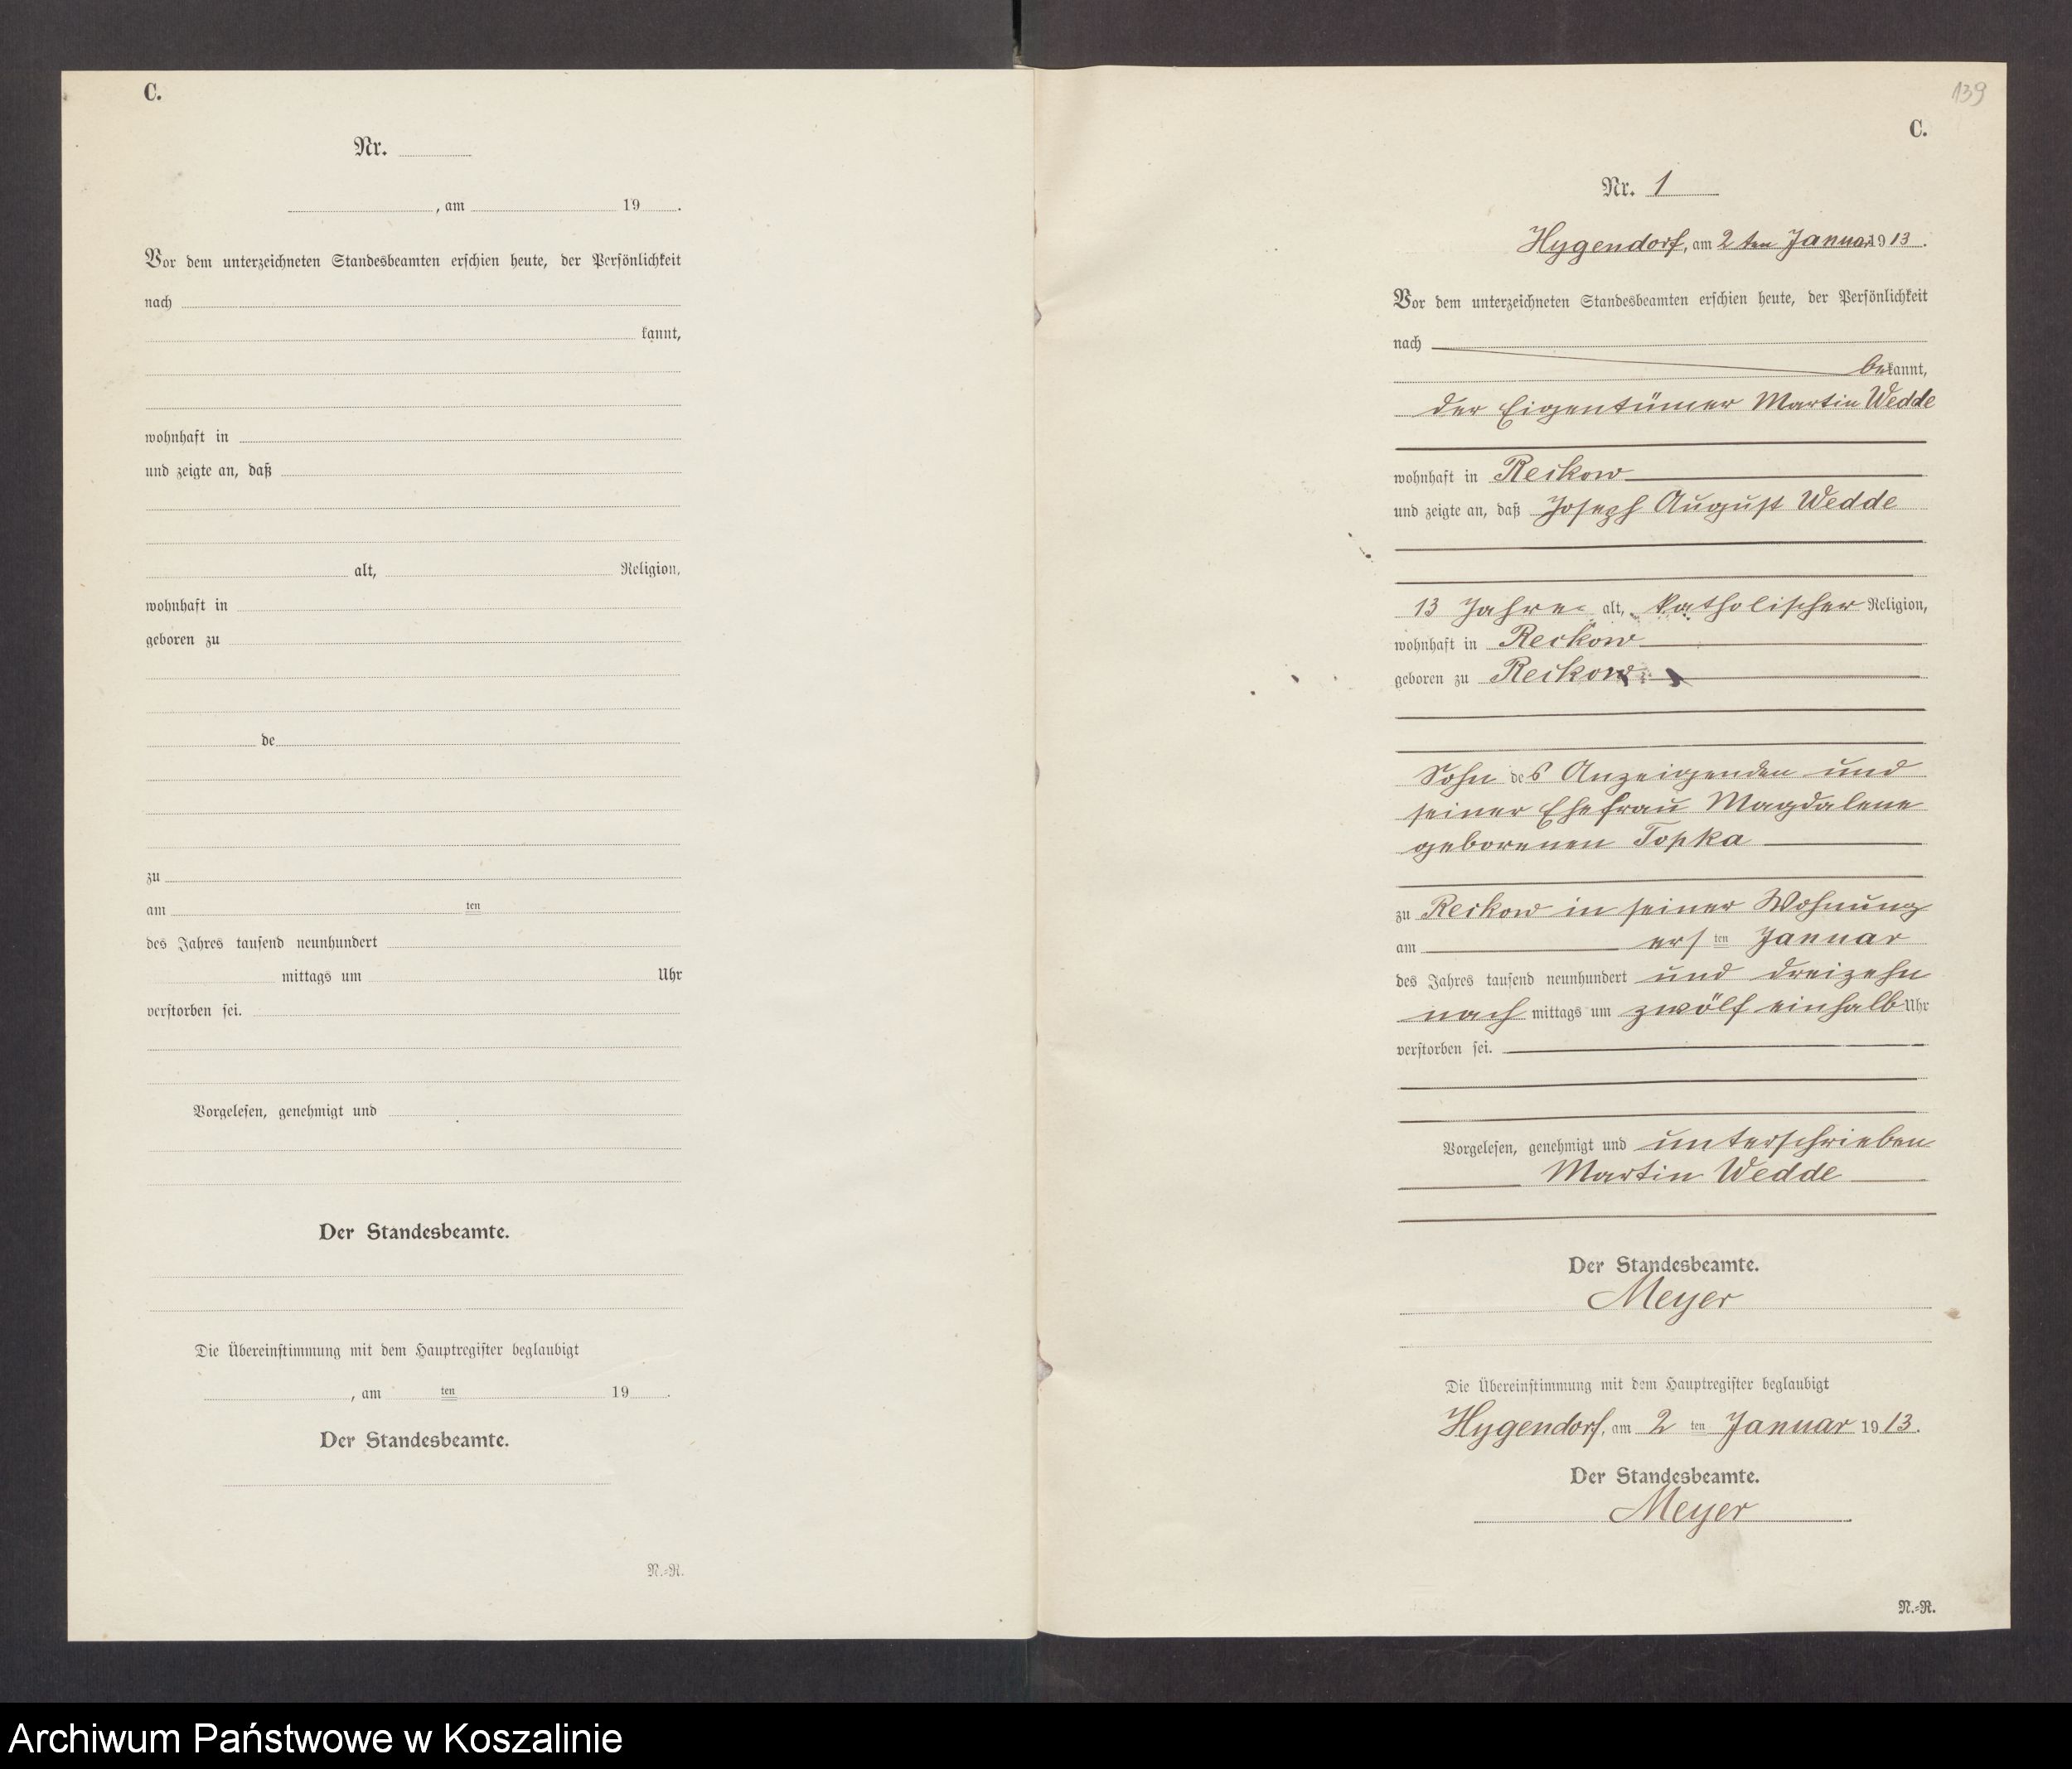 C.
Nr.
, am 19 .
Vor dem unterzeichneten Standesbeamten erschien heute, der Persönlichkeit
nach
kannt,
wohnhaft in
und zeigte an, daß
alt, Religion,
wohnhaft in
geboren zu
de
zu
am ten
des Jahres tausend neunhundert
mittags um Uhr
verstorben sei.
Vorgelesen, genehmigt und
Der Standesbeamte.
Die Übereinstimmung mit dem Hauptregister beglaubigt
, am ten 19 .
Der Standesbeamte.
N.=R.
139
C.
Nr. 1
Hygendorf, am 2 ten Januar 1913.
Vor dem unterzeichneten Standesbeamten erschien heute, der Persönlichkeit
nach
bekannt,
der Eigentümer Martin Wedde
wohnhaft in Reckow
und zeigte an, daß Joseph August Wedde
13 Jahre alt, katholischer Religion,
wohnhaft in Reckow
geboren zu Reckow
Sohn des Anzeigenden und
seiner Ehefrau Magdalene
geborenen Topka
zu Reckow in seiner Wohnung
am ersten Januar
des Jahres tausend neunhundert und dreizehn
nach mittags um zwölf einhalb Uhr
verstorben sei.
Vorgelesen, genehmigt und unterschrieben
Martin Wedde
Der Standesbeamte.
Meyer
Die Übereinstimmung mit dem Hauptregister beglaubigt
Hygendorf, am 2 ten Januar 1913.
Der Standesbeamte.
Meyer
N.=R.
Archiwum Państwowe w Koszalinie